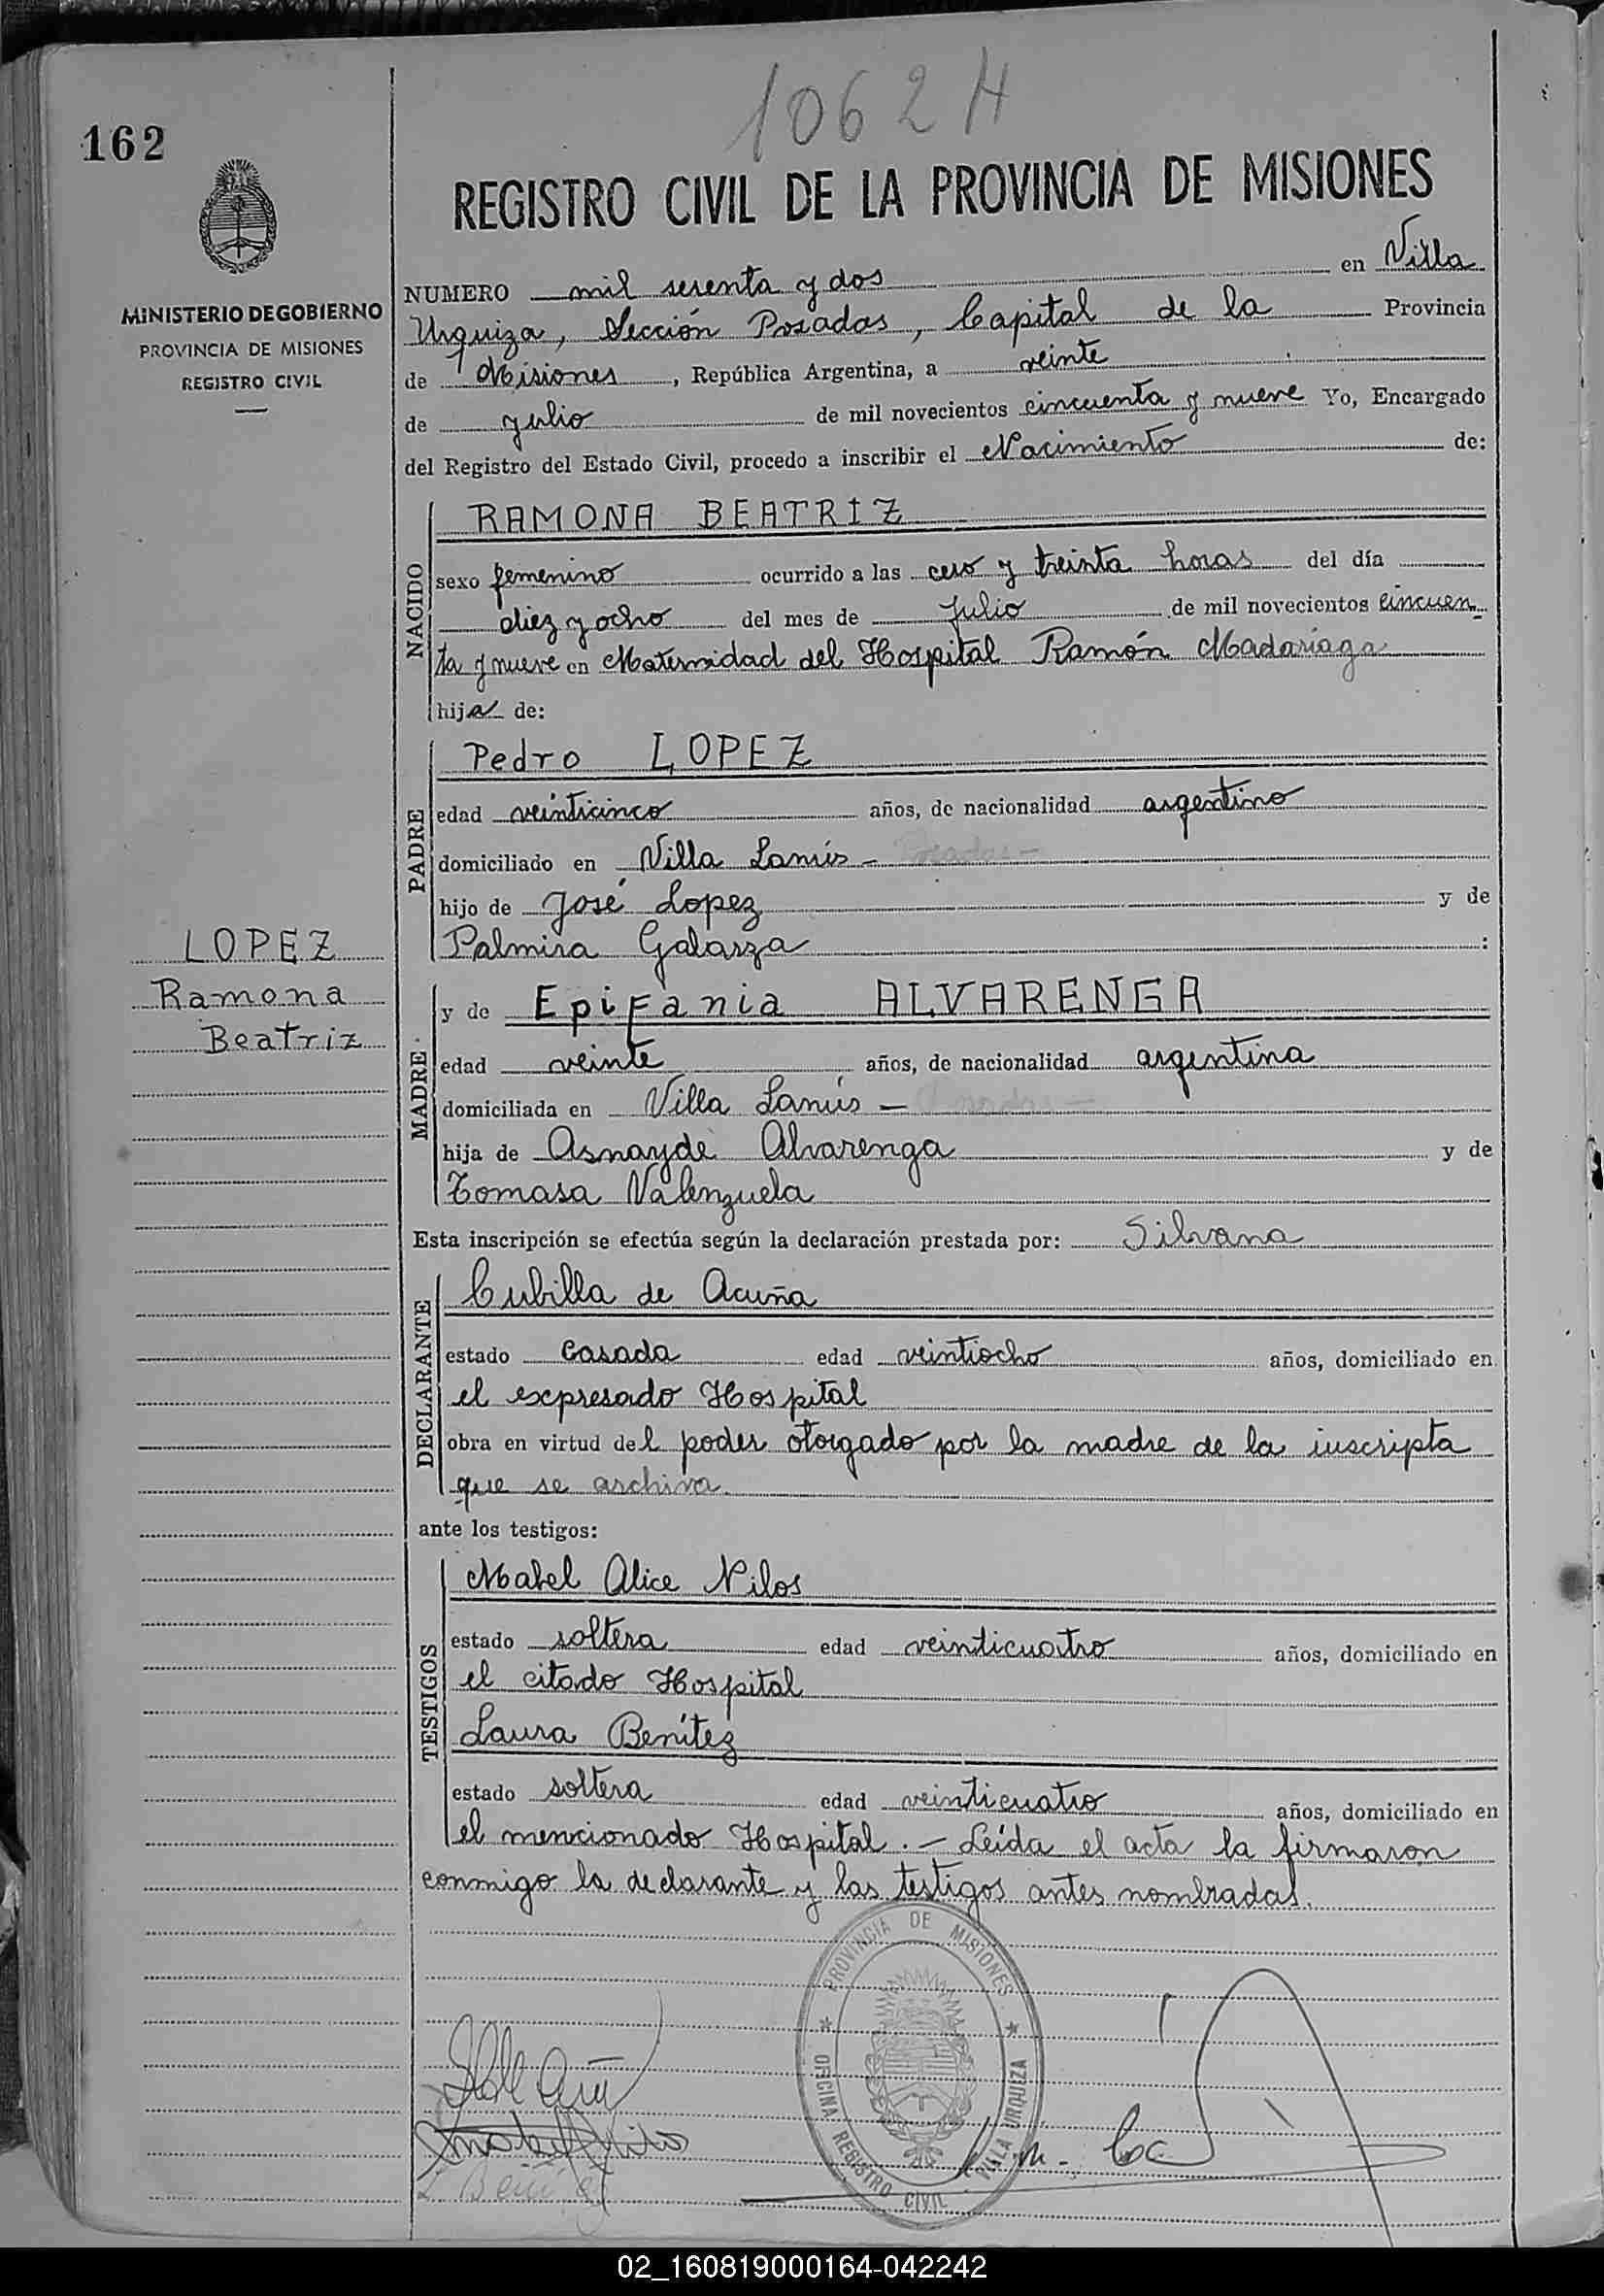 1062 H
162
REGISTRO CIVIL DE LA PROVINCIA DE MISIONES
MINISTERIO DE GOBIERNO
PROVINCIA DE MISIONES
REGISTRO CIVIL
NUMERO mil sesenta y dos en Villa
Urquiza, Sección Posadas, Capital de la Provincia
de Misiones, República Argentina, a veinte
de julio de mil novecientos cincuenta y nueve Yo, Encargado
del Registro del Estado Civil, procedo a inscribir el Nacimiento de:
NACIDO
RAMONA BEATRIZ
sexo femenino ocurrido a las cero y treinta horas del día
diez y ocho del mes de Julio de mil novecientos cincuen
ta y nueve en Maternidad del Hospital Ramón Madariaga
hija de:
PADRE
Pedro LOPEZ
edad veinticinco años, de nacionalidad argentino
domiciliado en Villa Lanús - Posadas -
hijo de José Lopez y de
Palmira Galarza :
LOPEZ
Ramona
Beatriz
MADRE
y de Epifania ALVARENGA
edad veinte años, de nacionalidad argentina
domiciliada en Villa Lanús - Posadas -
hija de Asnayde Alvarenga y de
Tomasa Valenzuela
Esta inscripción se efectúa según la declaración prestada por: Silvana
DECLARANTE
Cubilla de Acuña
estado casada edad veintiocho años, domiciliado en
el expresado Hospital
obra en virtud del poder otorgado por la madre de la inscripta
que se archiva
ante los testigos:
TESTIGOS
Mabel Alice Nilos
estado soltera edad veinticuatro años, domiciliado en
el citado Hospital
Laura Benítez
estado soltera edad veinticuatro años, domiciliado en
el mencionado Hospital. - Leída el acta la firmaron
conmigo la declarante y las testigos antes nombradas.
PROVINCIA DE MISIONES
OFICINA REGISTRO CIVIL VILLA URQUIZA
02_160819000164-042242